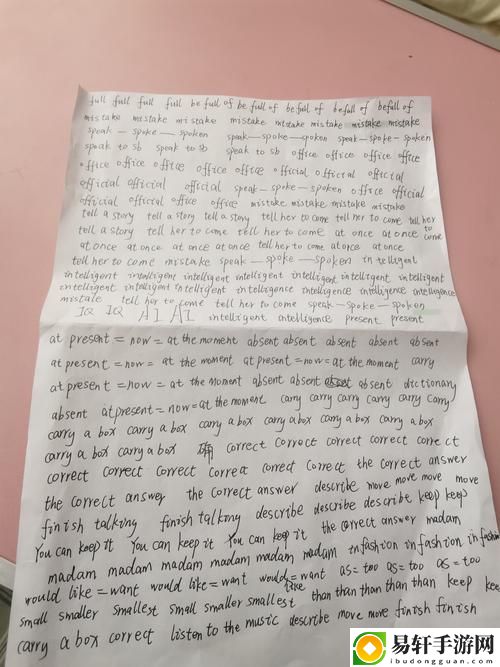 full full full full be full of be full of be full of be full of be full of
mistake mistake mistake mistake mistake mistake mistake mistake
speak — spoke — spoken speak — spoke — spoken speak — spoke — spoken
speak to sb speak to sb speak to sb office office office office
office office office office office office official official official
official official official speak — spoke — spoken office official
official official office office mistake mistake mistake mistake
tell a story tell a story tell a story tell her to come tell her to come tell her to come
tell a story tell her to come tell her to come at once at once at once
at once at once at once at once tell her to come at once at once
tell her to come mistake speak — spoke — spoken intelligent
intelligent intelligent intelligent intelligent intelligent intelligent intelligent
intelligent intelligent intelligent intelligence intelligence intelligence intelligence
mistake tell her to come tell her to come speak — spoke — spoken
IQ IQ AI AI intelligent intelligence present present
at present = now = at the moment absent absent absent absent absent
at present = now = at the moment at present = now = at the moment carry
at present = now = at the moment absent absent absent dictionary
absent at present = now = at the moment carry carry carry carry carry carry
carry a box carry a box carry a box carry a box carry a box carry a box
carry a box carry a box 确 correct correct correct correct correct
correct correct correct correct correct correct the correct answer
the correct answer the correct answer describe move move move move
finish talking finish talking describe describe describe keep keep
You can keep it You can keep it You can keep it the correct answer madam
madam madam madam madam madam madam in fashion in fashion in fashion
would like = want would like = want would like = want as = too as = too as = too
small smaller smallest small smaller smallest than than than than than keep keep
carry a box correct listen to the music describe move move finish finish
易轩手游网
ibudongguan.com